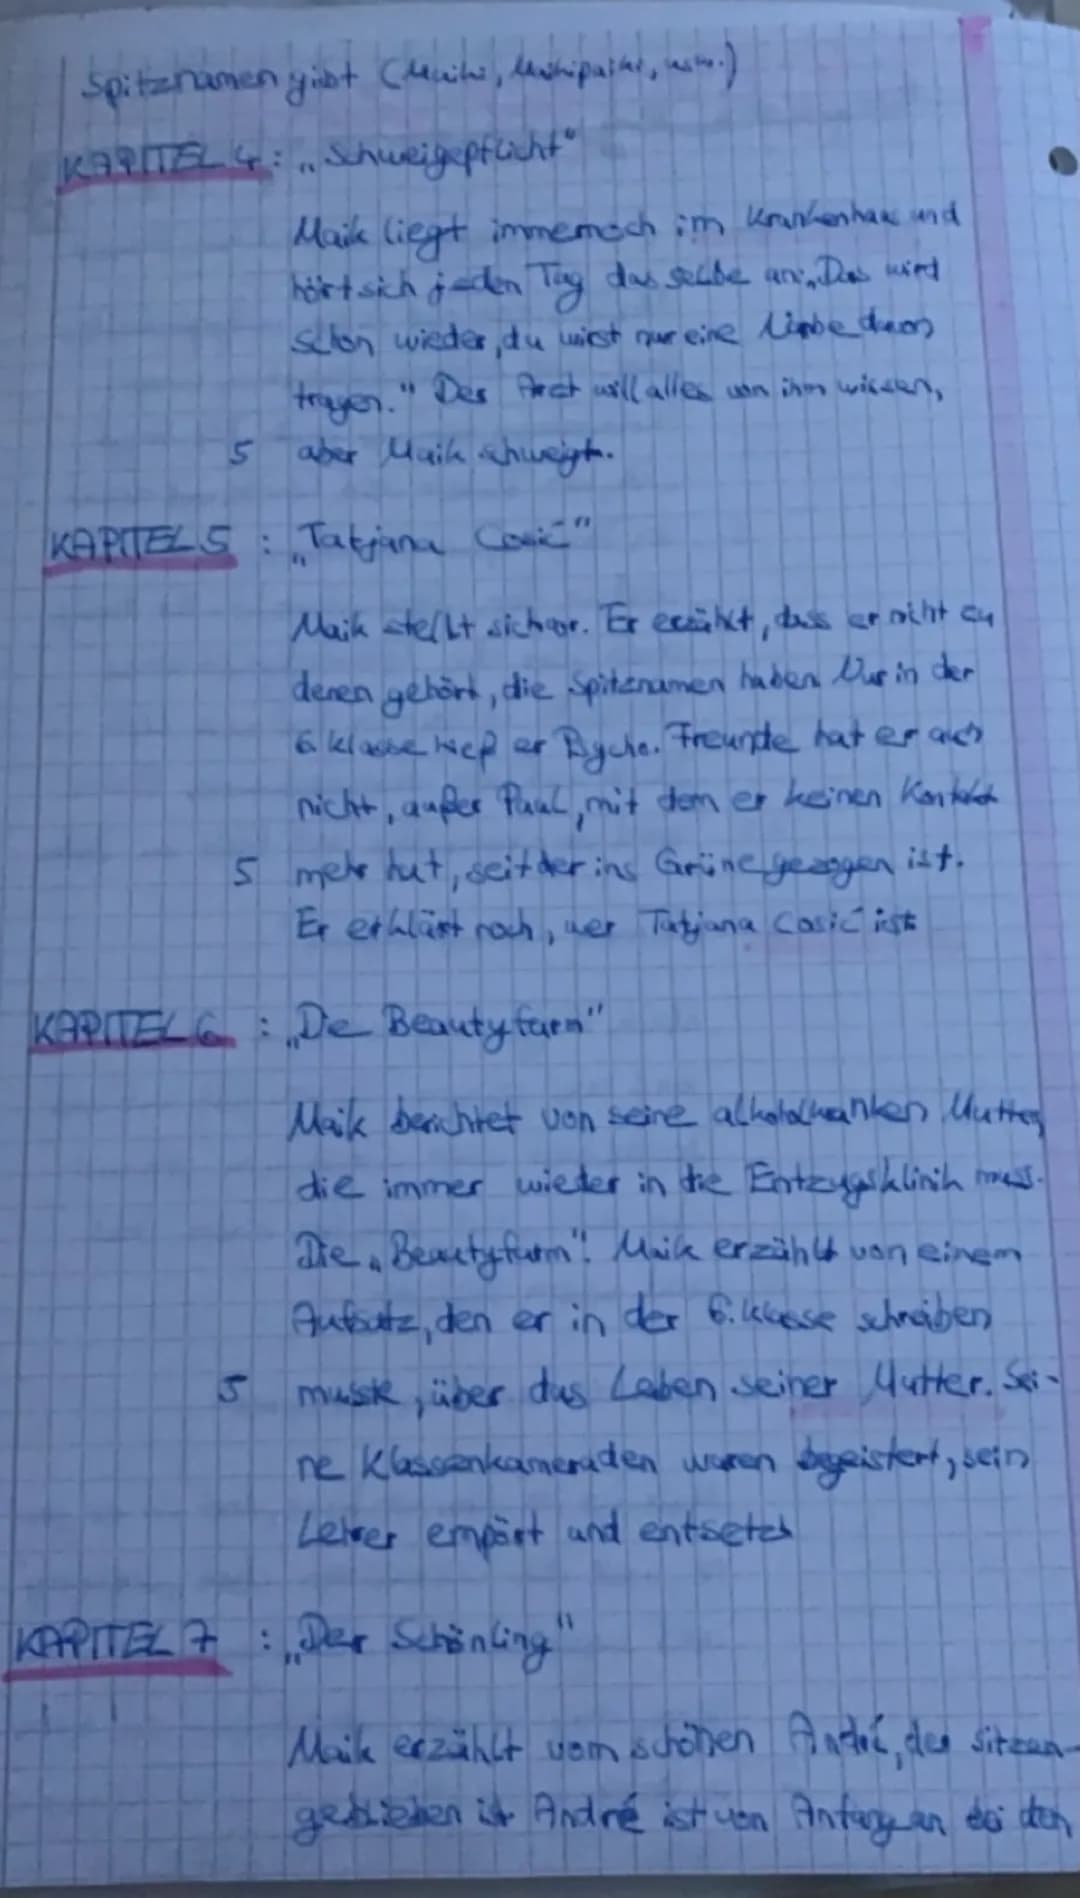 Spitznamen gibt (Maiki, usw.)
KAPITEL 4: „Schweigepflicht"
Maik liegt immernoch im Krankenhaus und
hört sich jeden Tag das selbe an: „Das wird
schon wieder, du wirst nur eine Narbe davon
tragen." Der Arzt will alles von ihm wissen,
5 aber Maik schweigt.
KAPITEL 5 : „Tatjana Cosić"
Maik stellt sich vor. Er erzählt, dass er nicht zu
denen gehört, die Spitznamen haben. Nur in der
6. Klasse hieß er Psycho. Freunde hat er auch
nicht, außer Paul, mit dem er keinen Kontakt
5 mehr hat, seit der ins Grüne gezogen ist.
Er erklärt noch, wer Tatjana Cosić ist
KAPITEL 6 : „Die Beautyfarm"
Maik berichtet von seine alkoholkranken Mutter,
die immer wieder in die Entzugsklinik muss.
Die „Beautyfarm". Maik erzählt von einem
Aufsatz, den er in der 6. Klasse schreiben
5 musste, über das Leben seiner Mutter. Sei-
ne Klassenkameraden waren begeistert, sein
Lehrer empört und entsetzt
KAPITEL 7 : „Der Schönling"
Maik erzählt vom schönen André, der sitzen-
geblieben ist. André ist von Anfang an bei den